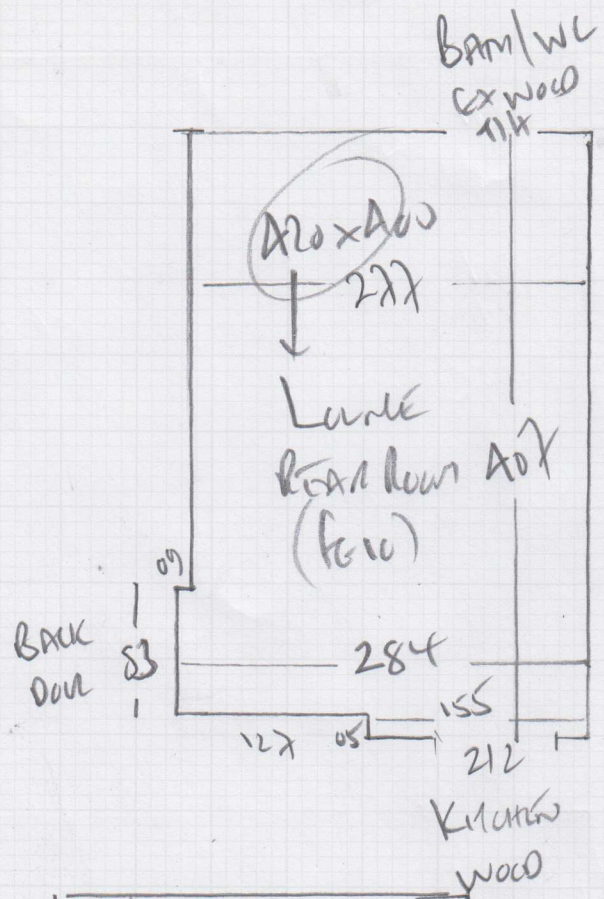 BATH/WC
EX WOOD
420 x 400
277
LOUNGE
REAR ROOM 407
07
BACK 83
DOOR
284
155
127 05
212
KITCHEN
WOOD